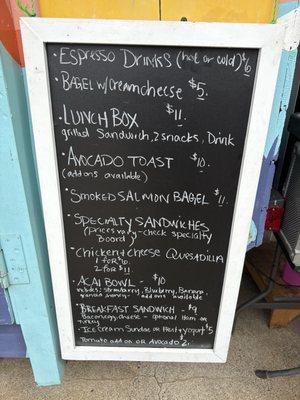 · Espresso Drinks (hot or cold) $6
· Bagel w/ Cream cheese $5.
· Lunch Box $11.
grilled Sandwich, 2 snacks, Drink
· Avocado Toast $10.
(add ons available)
· Smoked Salmon Bagel $11.
· Specialty Sandwiches
(Prices vary - check specialty
Board)
· Chicken + Cheese Quesadilla
1 for $6.
2 for $11.
· Acai Bowl - $10
includes: Strawberry, Blueberry, Banana,
granola, honey - add ons available
· Breakfast Sandwich - $9
Bacon, egg, cheese - optional Ham or
turkey
· Ice Cream Sundae or Yogurt $5
Tomato add on or Avocado 2.